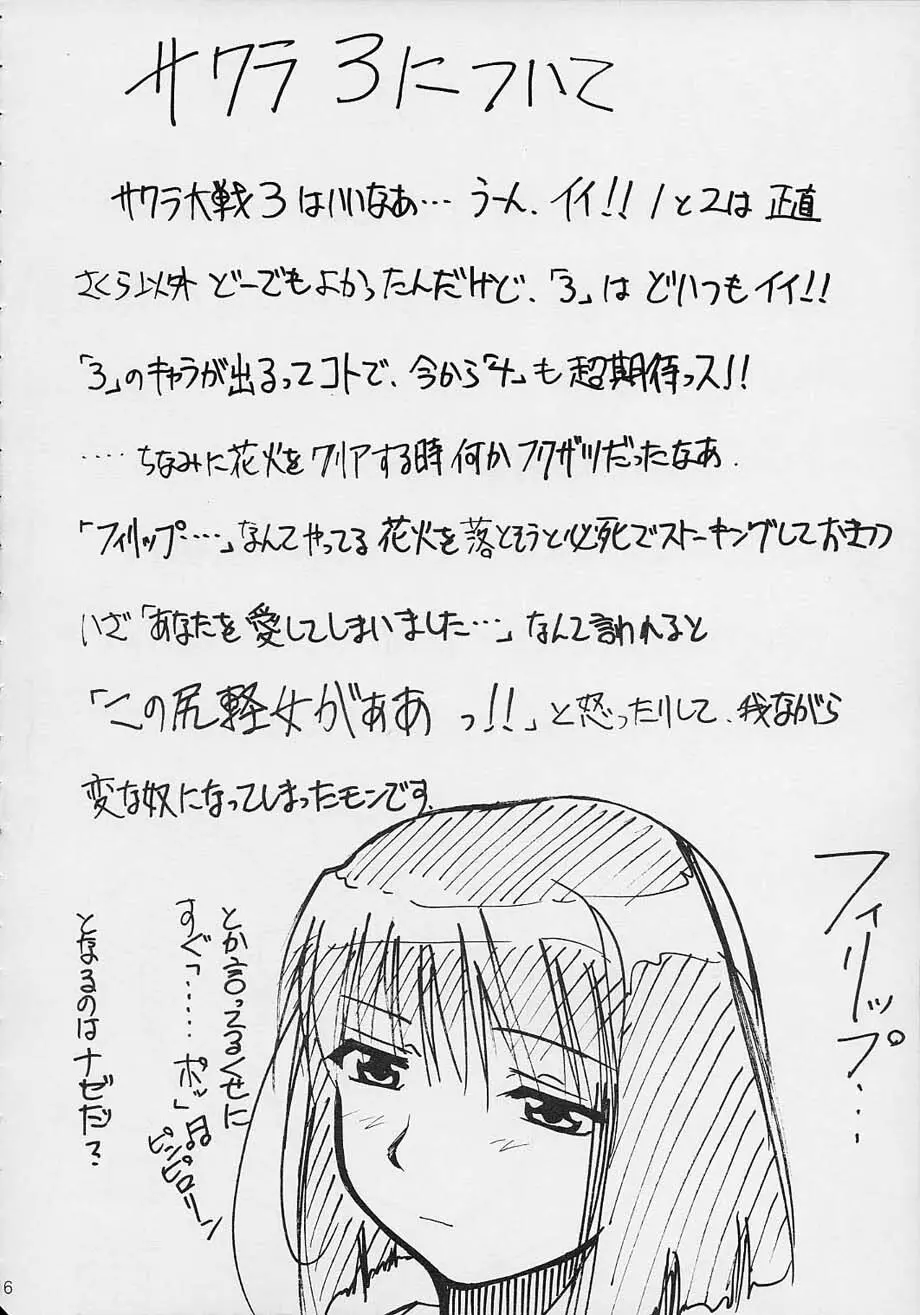 サクラ3について
サクラ大戦3はいいなあ…うーん、イイ!!1と2は正直
さくら以外どーでもよかったんだけど、「3」はどいつもイイ!!
「3」のキャラが出るってコトで、今から「4」も超期待っス!!
‥‥ちなみに花火をクリアする時何かフクザツだったなあ.
「フィリップ‥‥」なんてやってる花火を落とそうと必死でストーキングしておきつつ
いざ「あなたを愛してしまいました…」なんて言われると
「この尻軽女がぁああっ!!」と怒ったりして、我ながら
変な奴になってしまったモンです.
フィリップ…
とか言ってるくせに
すぐ「‥‥‥ポッ」
ピンピロリーン
となるのはナゼだ?
6